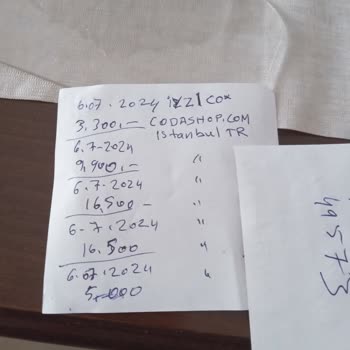 6.07.2024 İZZI COX
3.300,- CODASHOP.COM
6.7-2024 İstanbul TR
9.900,- "
6.7.2024 "
16,500- "
6-7.2024 "
16.500 "
6.07.2024 "
5.000
49573